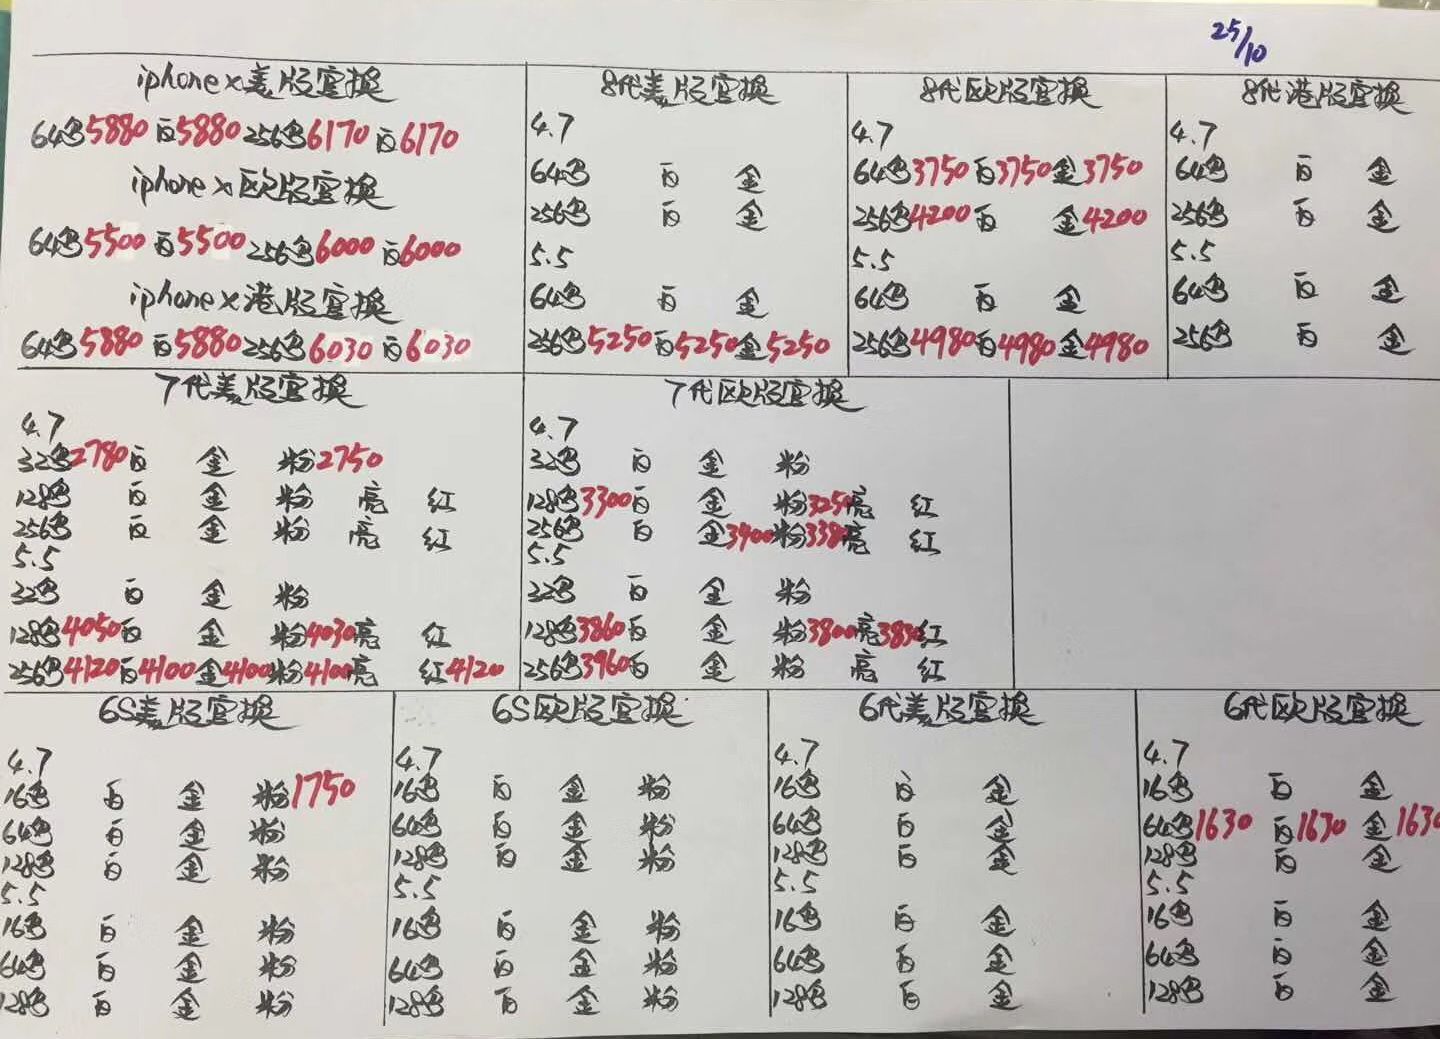 25/10
iphonex美版官换
64黑5880 白5880 256黑6170 白6170
iphonex欧版官换
64黑5500 白5500 256黑6000 白6000
iphonex港版官换
64黑5880 白5880 256黑6030 白6030
8代美版官换
4.7
64黑 白 金
256黑 白 金
5.5
64黑 白 金
256黑5250白5250金5250
8代欧版官换
4.7
64黑3750白3750金3750
256黑4200白 金4200
5.5
64黑 白 金
256黑4980白4980金4980
8代港版官换
4.7
64黑 白 金
256黑 白 金
5.5
64黑 白 金
256黑 白 金
7代美版官换
4.7
32黑2780白 金 粉2750
128黑 白 金 粉 亮 红
256黑 白 金 粉 亮 红
5.5
32黑 白 金 粉
128黑4050白 金 粉4030亮 红
256黑4120白4100金4100粉4100亮 红4120
7代欧版官换
4.7
32黑 白 金 粉
128黑3300白 金 粉3250亮 红
256黑 白 金3400粉3380亮 红
5.5
32黑 白 金 粉
128黑3860白 金 粉3800亮3830红
256黑3960白 金 粉 亮 红
6S美版官换
4.7
16黑 白 金 粉1750
64黑 白 金 粉
128黑 白 金 粉
5.5
16黑 白 金 粉
64黑 白 金 粉
128黑 白 金 粉
6S欧版官换
4.7
16黑 白 金 粉
64黑 白 金 粉
128黑 白 金 粉
5.5
16黑 白 金 粉
64黑 白 金 粉
128黑 白 金 粉
6代美版官换
4.7
16黑 白 金
64黑 白 金
128黑 白 金
5.5
16黑 白 金
64黑 白 金
128黑 白 金
6代欧版官换
4.7
16黑 白 金
64黑1630 白1630 金1630
128黑 白 金
5.5
16黑 白 金
64黑 白 金
128黑 白 金